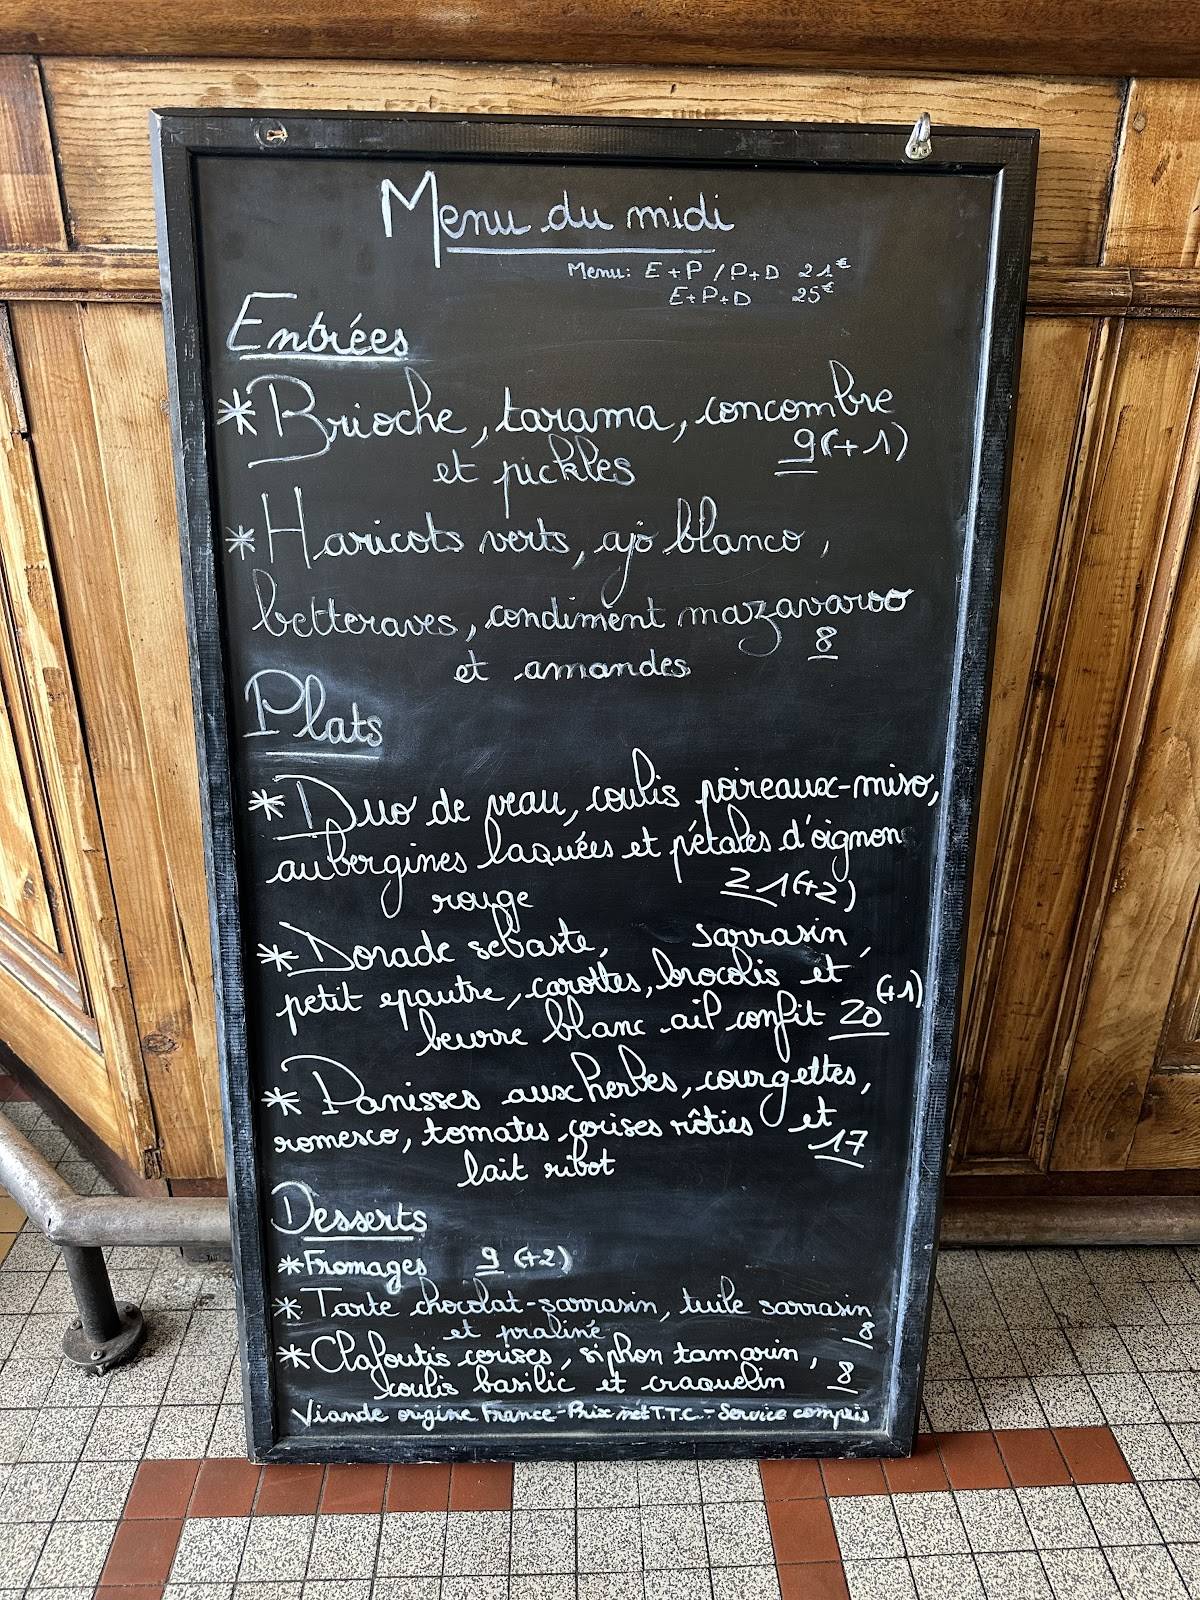 Menu du midi
Menu: E+P / P+D 21€
E+P+D 25€
Entrées
* Brioche, tarama, concombre
et pickles 9 (+1)
* Haricots verts, ajo blanco,
betteraves, condiment mazavaroo
et amandes 8
Plats
* Duo de veau, coulis poireaux-miso,
aubergines laquées et pétales d'oignon
rouge 21 (+2)
* Dorade sebaste, sarrasin,
petit epautre, carottes, brocolis et
beurre blanc ail confit 20 (+1)
* Panisses aux herbes, courgettes,
romesco, tomates cerises rôties et
lait ribot 17
Desserts
* Fromages 9 (+2)
* Tarte chocolat-sarrasin, tuile sarrasin
et praliné 8
* Clafoutis cerises, siphon tamarin,
coulis basilic et craquelin 8
Viande origine France - Prix net T.T.C. - Service compris